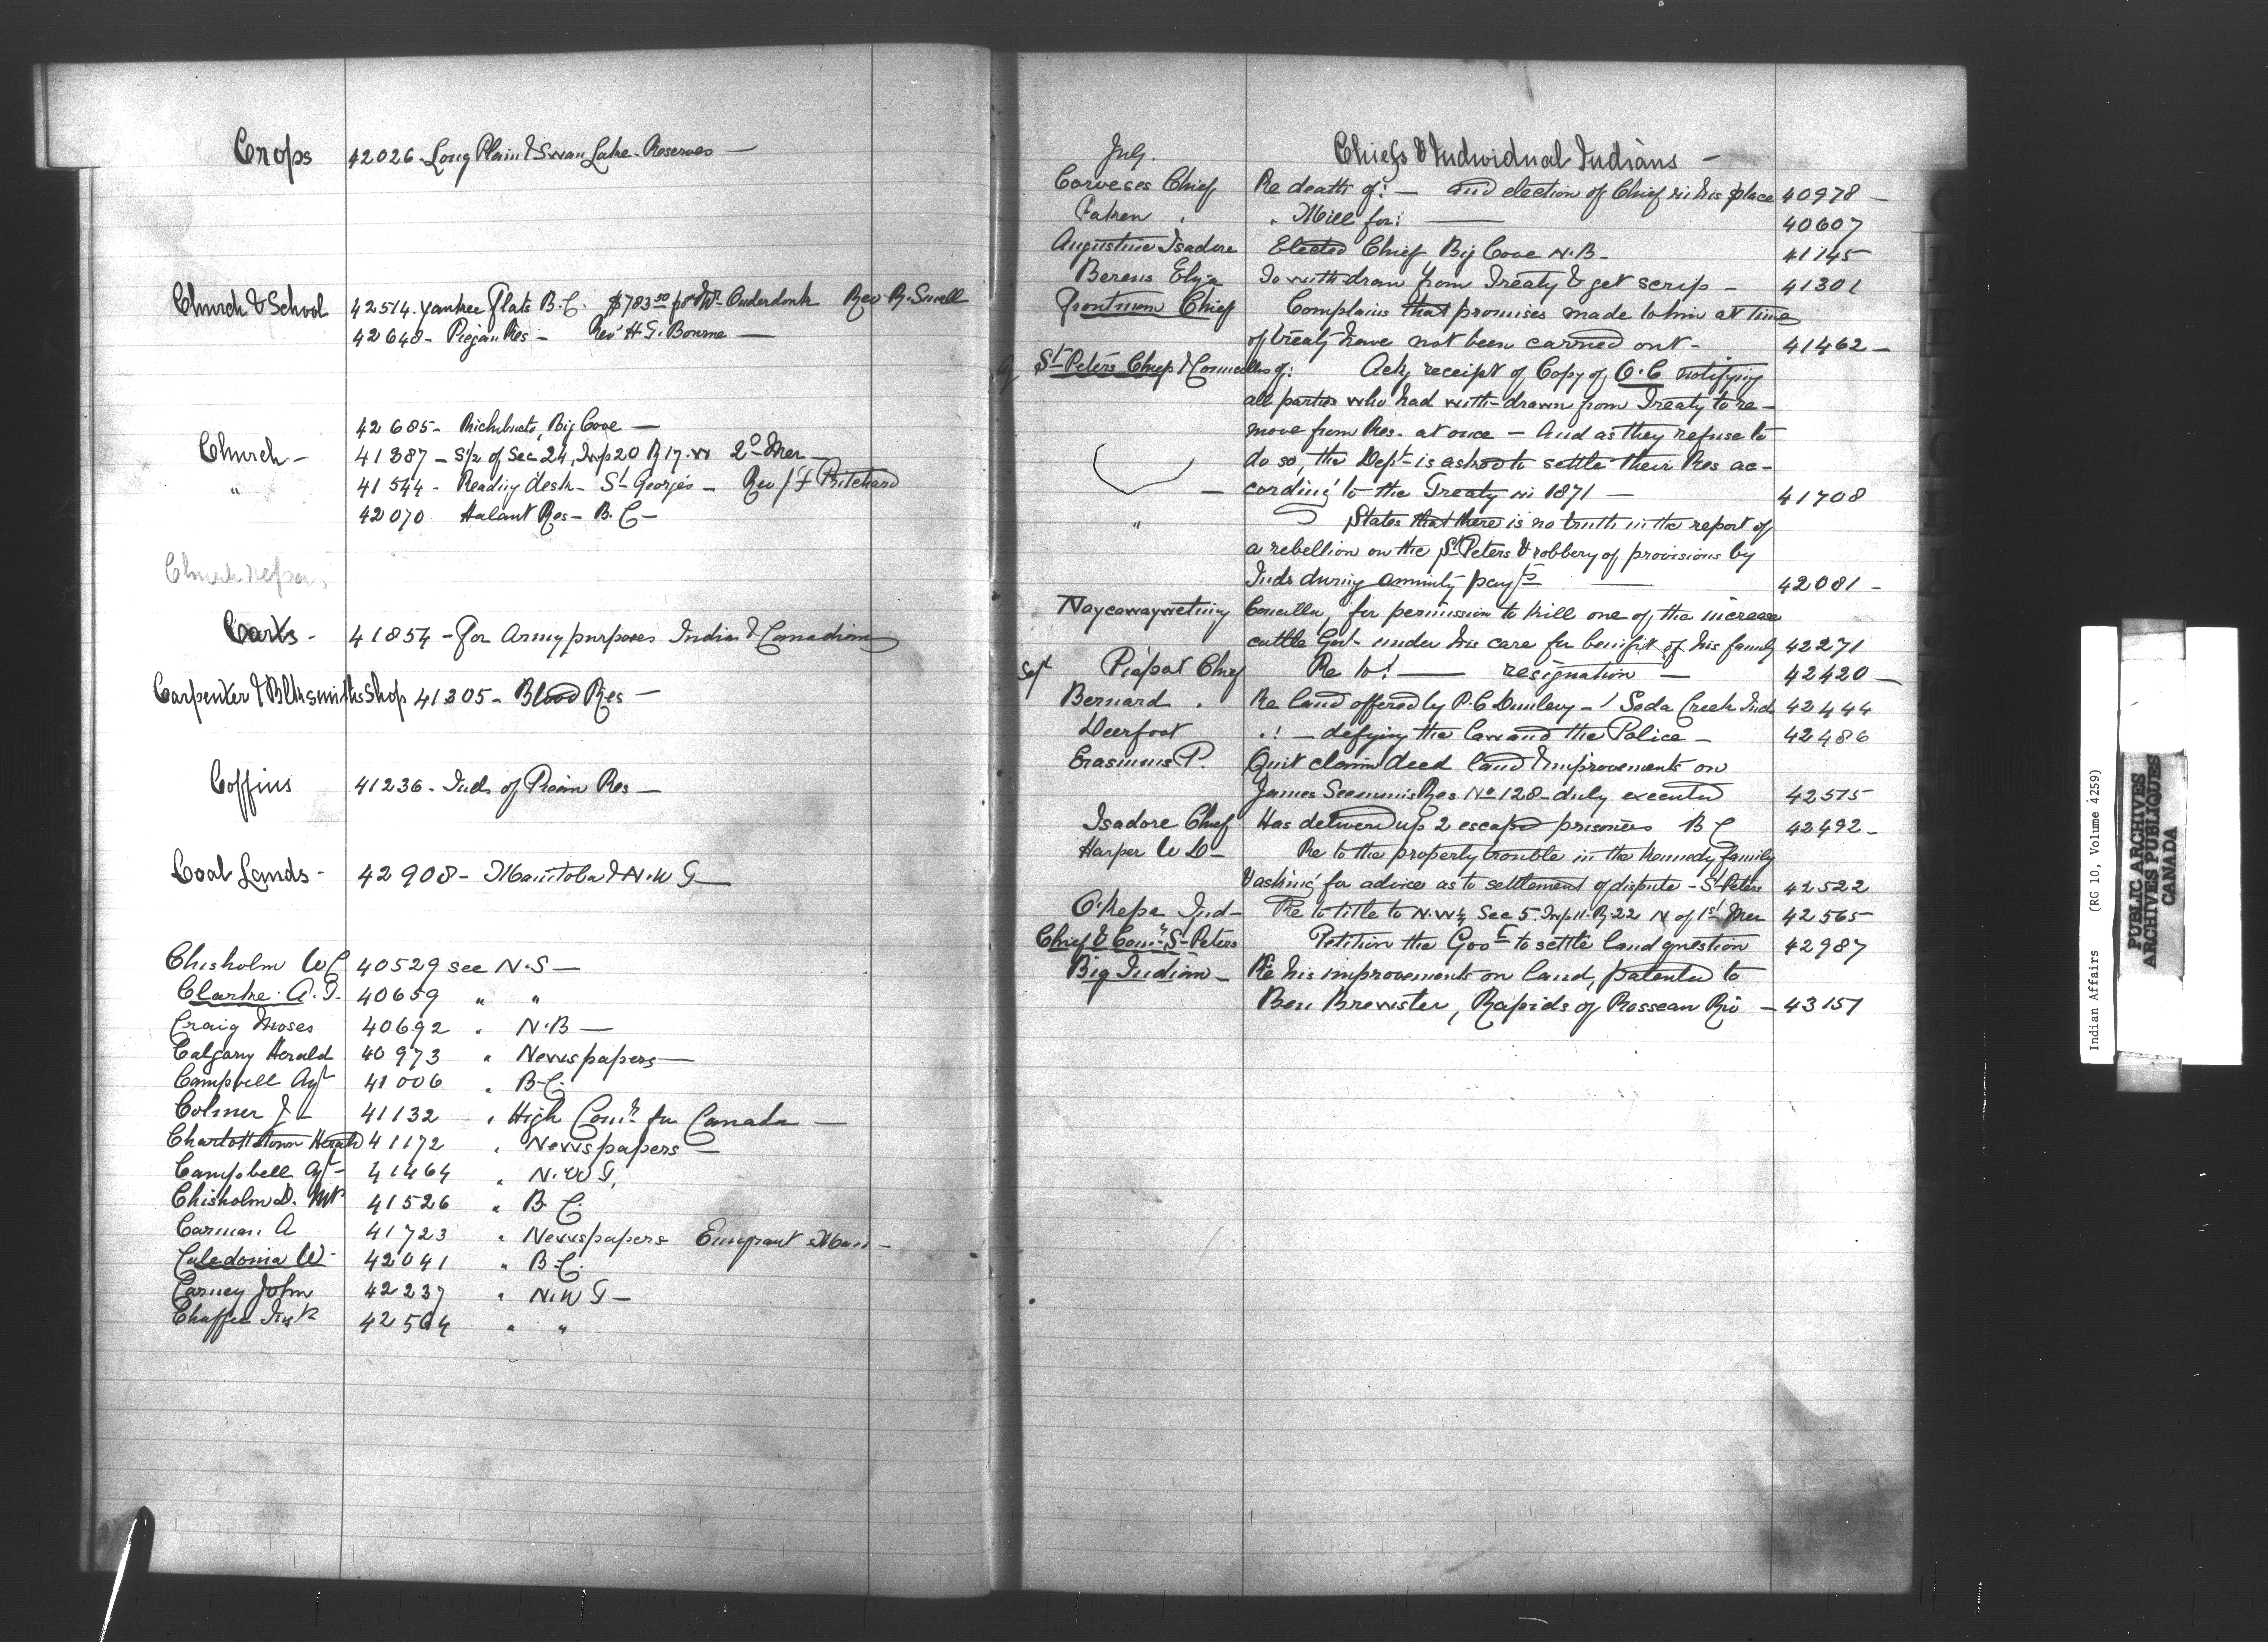 Crops 42026 - Long Plain & Swan Lake - Reserves -
Church & School 42514. Yankee Flats B.C. $783.50 pr Mr Onderdonk Rev R. Small
42648 - Piegan Res - Rev H.T. Bourne -
42685 - Richibucto, Big Cove -
Church - 41387 - S½ of Sec 24, Twp 20 R 17. W 2d Mer -
" 41544 - Reading desk - St George's - Rev J F Pritchard
42070 Halant Res - B.C -
Church repairs
Carts - 41854 - For Army purposes India & Canadian
Carpenter & Blksmiths Shop 41305 - Blood Res -
Coffins 41236 - Inds of Res -
Coal Lands - 42908 - Manitoba & N.W T -
Chisholm W C 40529 see N.S -
Clarke A. T. 40659 " "
Craig Moses 40692 " N.B -
Calgary Herald 40973 " Newspapers -
Campbell Agt 41006 " B.C.
Colmer J - 41132 " High Comr for Canada -
Charlottetown Herald 41172 " Newspapers -
Campbell Agt - 41464 " N.W T,
Chisholm D. Mr 41526 " B.C.
Carman A 41723 " Newspapers Emigrant Man -
Caledonia W - 42041 " B.C.
Carney John 42237 " N.W T -
Chaffee 42504 " "
July. Chiefs & Individual Indians -
Corveses Chief Re death of: - and election of Chief in his place 40978 -
" " Mill for: - 40607
Augustine Isadore Elected Chief Big Cove N.B - 41145
Berens Elija To with-draw from Treaty & get scrip - 41301
Frontman Chief Complains that promises made to him at time
of treaty have not been carried out - 41462 -
St Peters Chief & Councillors of: Ackg receipt of Copy of O.C notifying
all parties who had with-drawn from Treaty to re-
move from Res. at once - And as they refuse to
do so, the Dept is asked to settle their Res ac-
- cording to the Treaty in 1871 - 41708
" States that there is no truth in the report of
a rebellion on the St Peters & robbery of provisions by
Inds during annuity payts - 42081 -
Naycawaywetung Councillor, for permission to kill one of the increase
cattle Govt under his care for benefit of his family 42271
Sept Piapot Chief Re to: - resignation - 42420 -
Bernard " Re land offered by P.C Dunlevy - / Soda Creek Inds 42444
Deerfoot " : - defying the law and the Police - 42486
Erasmus P. Quit claim deed land & improvements on
James Res No 128 - duly executed 42575
Isadore Chief Has delivered up 2 escaped prisoners B C 42492 -
Harper W D - Re to the property trouble in the Kennedy family
& asking for advice as to settlement of dispute - St Peters 42522
O.Kepa Ind - Re to title to N.W¼ Sec 5. Twp 11. R. 22 N of 1st Mer 42565
Chief & Counr St Peters Petition the Govt to settle land question 42987
Big Indian - Re his improvements on land, patented to
Ben Brewster, Rapids of Rosseau Riv - 43157
Indian Affairs (RG 10, Volume 4259)
PUBLIC ARCHIVES
ARCHIVES PUBLIQUES
CANADA